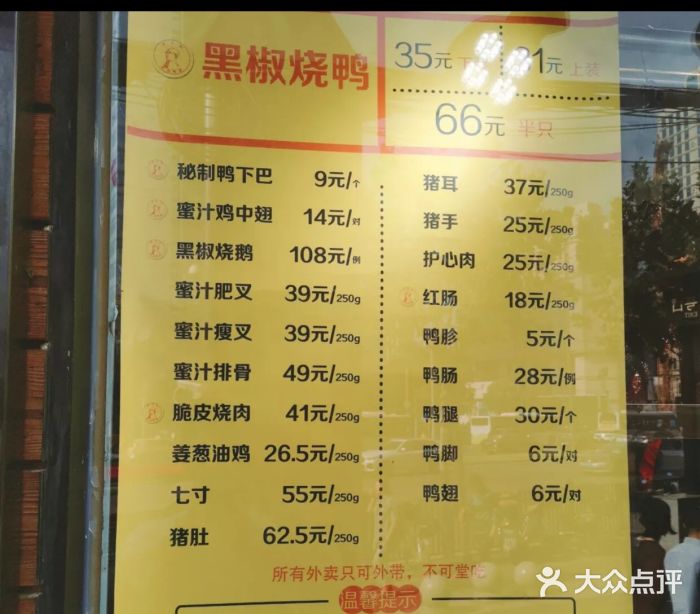 黑椒烧鸭
35元 下
31元 上装
66元 半只
秘制鸭下巴 9元/个
蜜汁鸡中翅 14元/对
黑椒烧鹅 108元/例
蜜汁肥叉 39元/250g
蜜汁瘦叉 39元/250g
蜜汁排骨 49元/250g
脆皮烧肉 41元/250g
姜葱油鸡 26.5元/250g
七寸 55元/250g
猪肚 62.5元/250g
猪耳 37元/250g
猪手 25元/250g
护心肉 25元/250g
红肠 18元/250g
鸭胗 5元/个
鸭肠 28元/例
鸭腿 30元/个
鸭脚 6元/对
鸭翅 6元/对
所有外卖只可外带，不可堂吃
温馨提示
大众点评